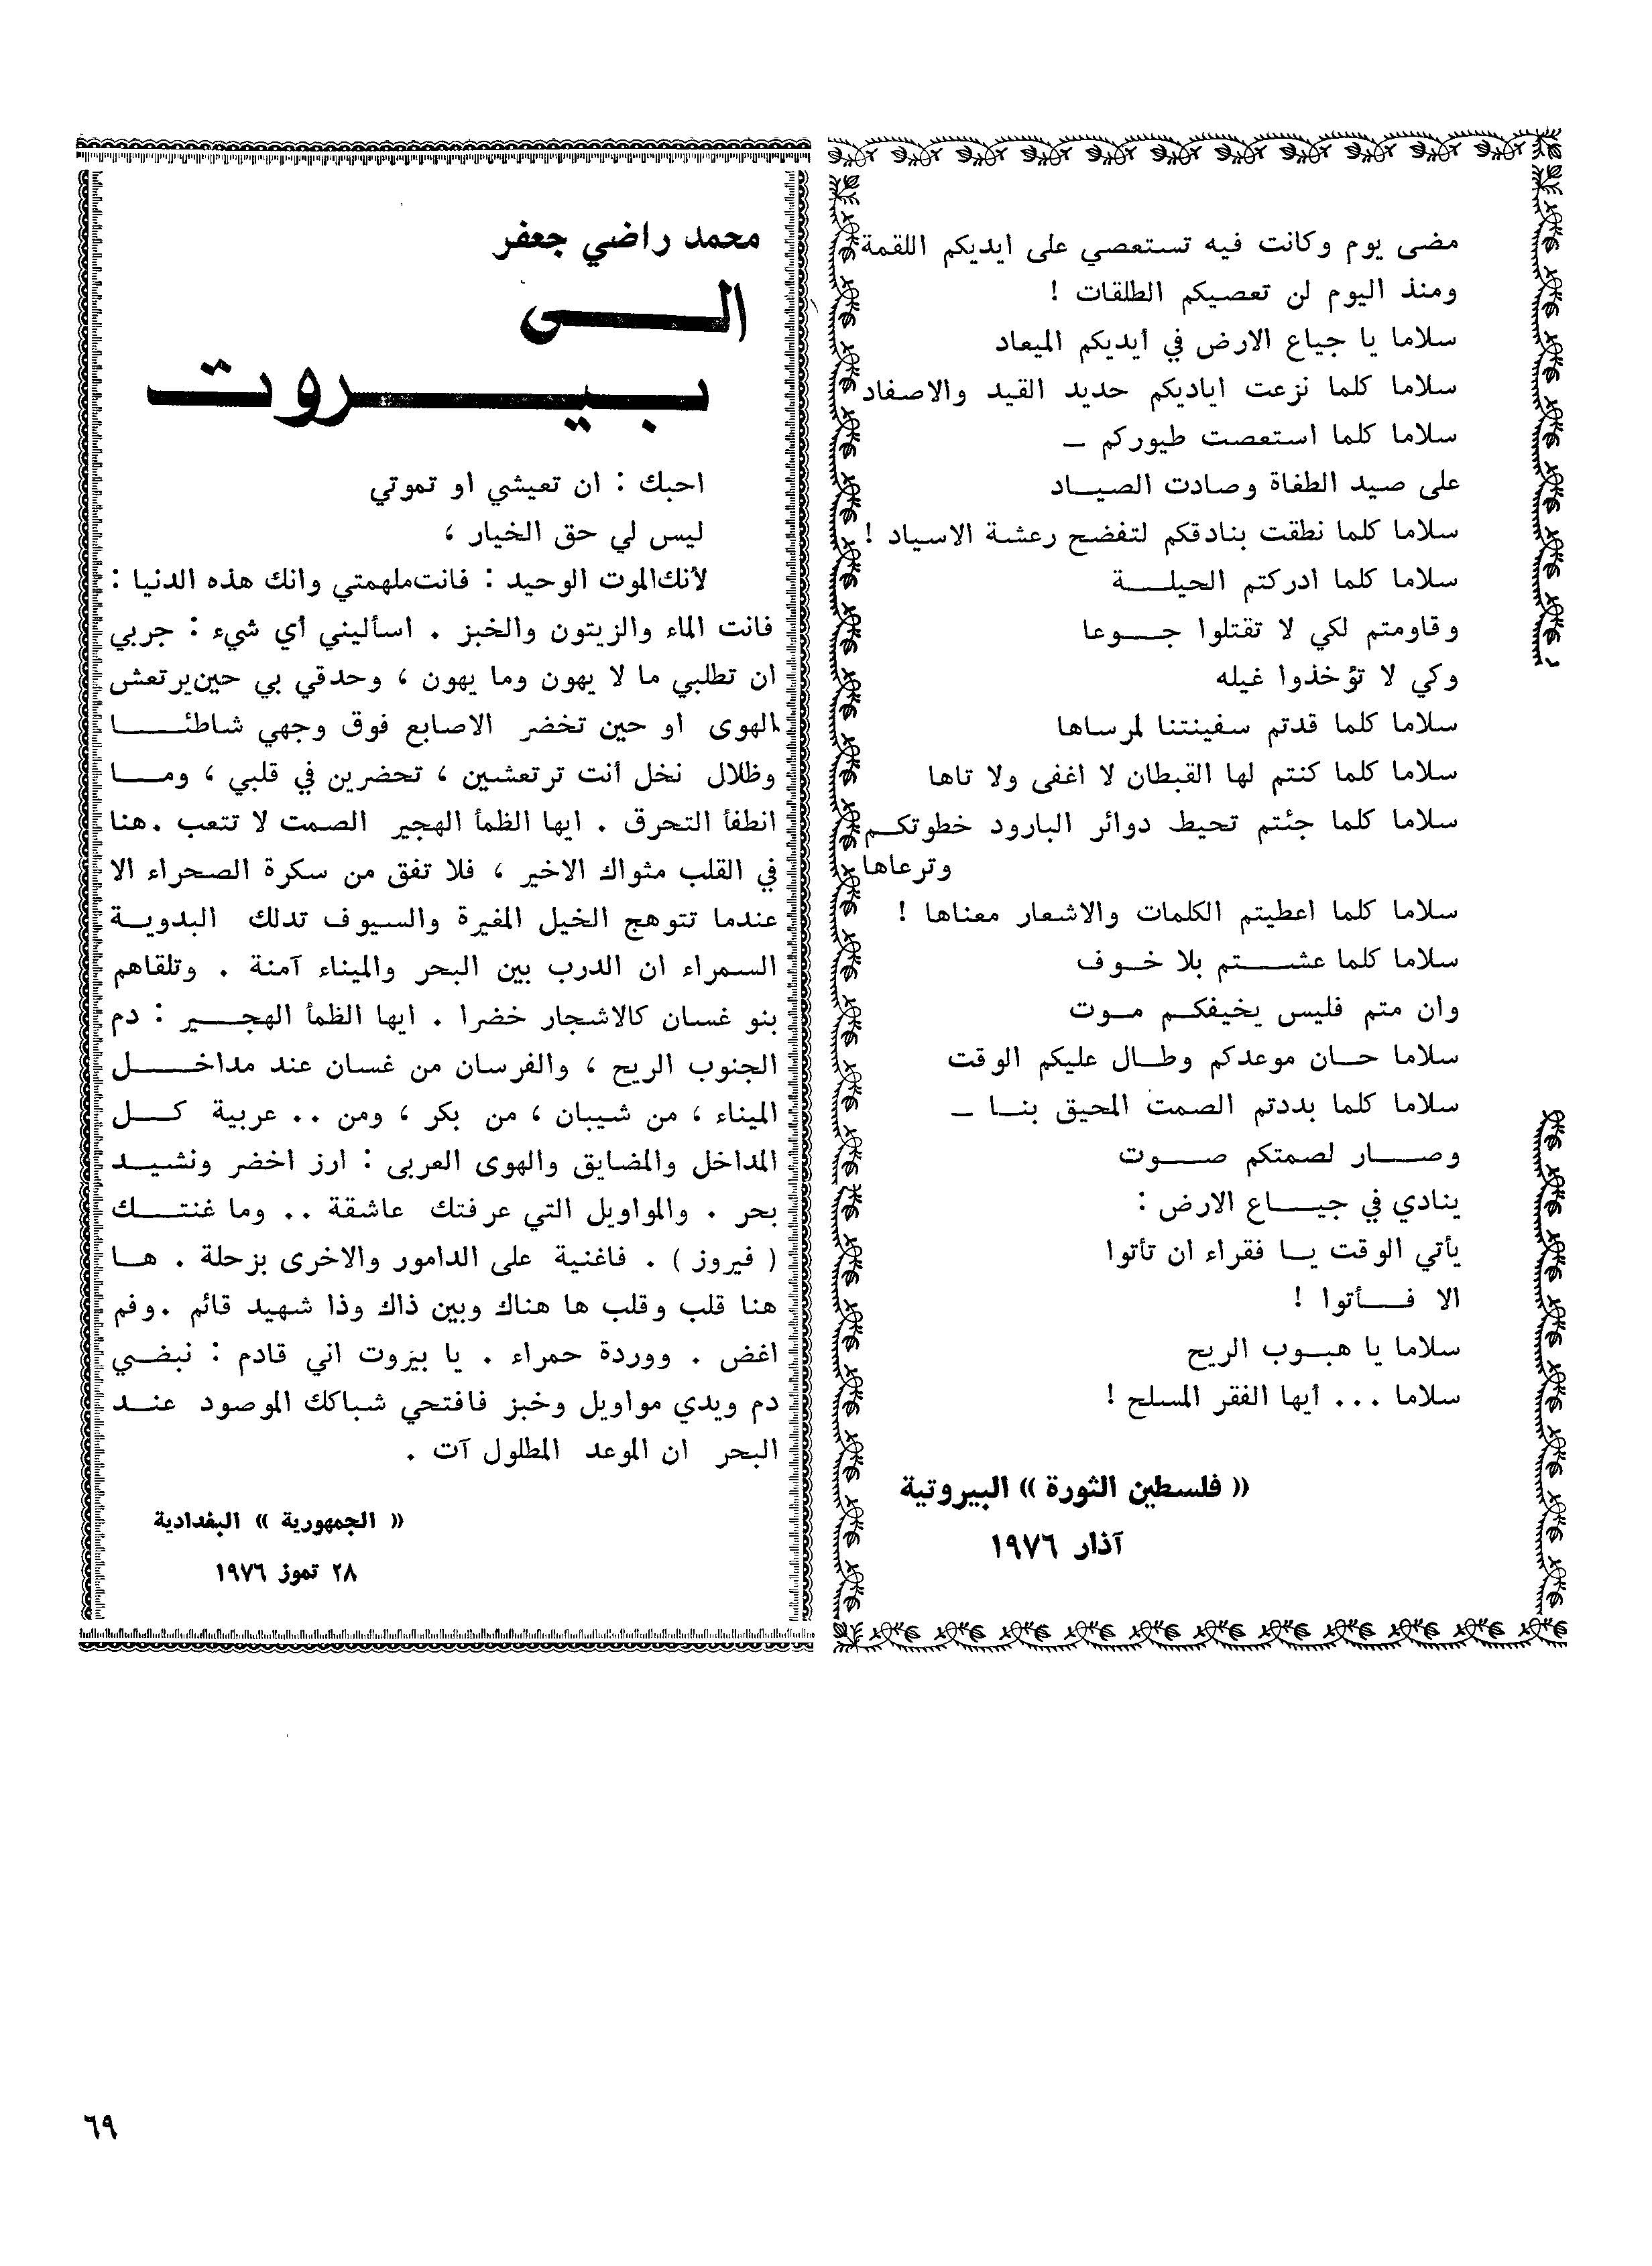 مضى يوم وكانت فيه تستعصي على ايديكم اللقمة
ومنذ اليوم لن تعصيكم الطلقات !
سلاما يا جياع الارض في أيديكم الميعاد
سلاما كلما نزعت اياديكم حديد القيد والاصفاد
سلاما كلما استعصت طيوركم ــ
على صيد الطغاة وصادت الصيـــاد
سلاما كلما نطقت بنادقكم لتفضح رعشة الاسياد !
سلاما كلما ادركتم الحيلـــــة
وقاومتم لكي لا تقتلوا جـــوعا
وكي لا تؤخذوا غيله
سلاما كلما قدتم سفينتنا لمرساها
سلاما كلما كنتم لها القبطان لا اغفى ولا تاها
سلاما كلما جئتم تحيط دوائر البارود خطوتكــم
وترعاها
سلاما كلما اعطيتم الكلمات والاشعار معناها !
سلاما كلما عشــــتم بلا خــوف
وان متم فليس يخيفكــم مــوت
سلاما حــان موعدكم وطــال عليكم الوقت
سلاما كلما بددتم الصمت المحيق بنــا ــ
وصــــار لصمتكم صــــوت
ينادي في جيــــاع الارض :
يأتي الوقت يــا فقراء ان تأتوا
الا فــــأتوا !
سلاما يا هبــوب الريح
سلاما ... أيها الفقر المسلح !
« فلسطين الثورة » البيروتية
آذار ١٩٧٦
محمد راضي جعفر
الـــــى
بـيـــــروت
احبك : ان تعيشي او تموتي
ليس لي حق الخيار ،
لأنك الموت الوحيد : فانت ملهمتي وانك هذه الدنيا :
فانت الماء والزيتون والخبز . اسأليني أي شيء : جربي
ان تطلبي ما لا يهون وما يهون ، وحدقي بي حين يرتعش
الهوى او حين تخضر الاصابع فوق وجهي شاطئـــــا
وظلال نخل أنت ترتعشين ، تحضرين في قلبي ، ومـــا
انطفأ التحرق . ايها الظمأ الهجير الصمت لا تتعب . هنا
في القلب مثواك الاخير ، فلا تفق من سكرة الصحراء الا
عندما تتوهج الخيل المغيرة والسيوف تدلك البدويــة
السمراء ان الدرب بين البحر والميناء آمنة . وتلقاهم
بنو غسان كالاشجار خضرا . ايها الظمأ الهجـــير : دم
الجنوب الريح ، والفرسان من غسان عند مداخــــل
الميناء ، من شيبان ، من بكر ، ومن .. عربية كـــل
المداخل والمضايق والهوى العربى : ارز اخضر ونشيــد
بحر . والمواويل التي عرفتك عاشقة .. وما غنتــــك
( فيروز ) . فاغنية على الدامور والاخرى بزحلة . هــا
هنا قلب وقلب ها هناك وبين ذاك وذا شهيد قائم . وفم
اغض . ووردة حمراء . يا بيروت اني قادم : نبضــي
دم ويدي مواويل وخبز فافتحي شباكك الموصود عنــد
البحر ان الموعد المطلول آت .
« الجمهورية » البغدادية
٢٨ تموز ١٩٧٦
٦٩